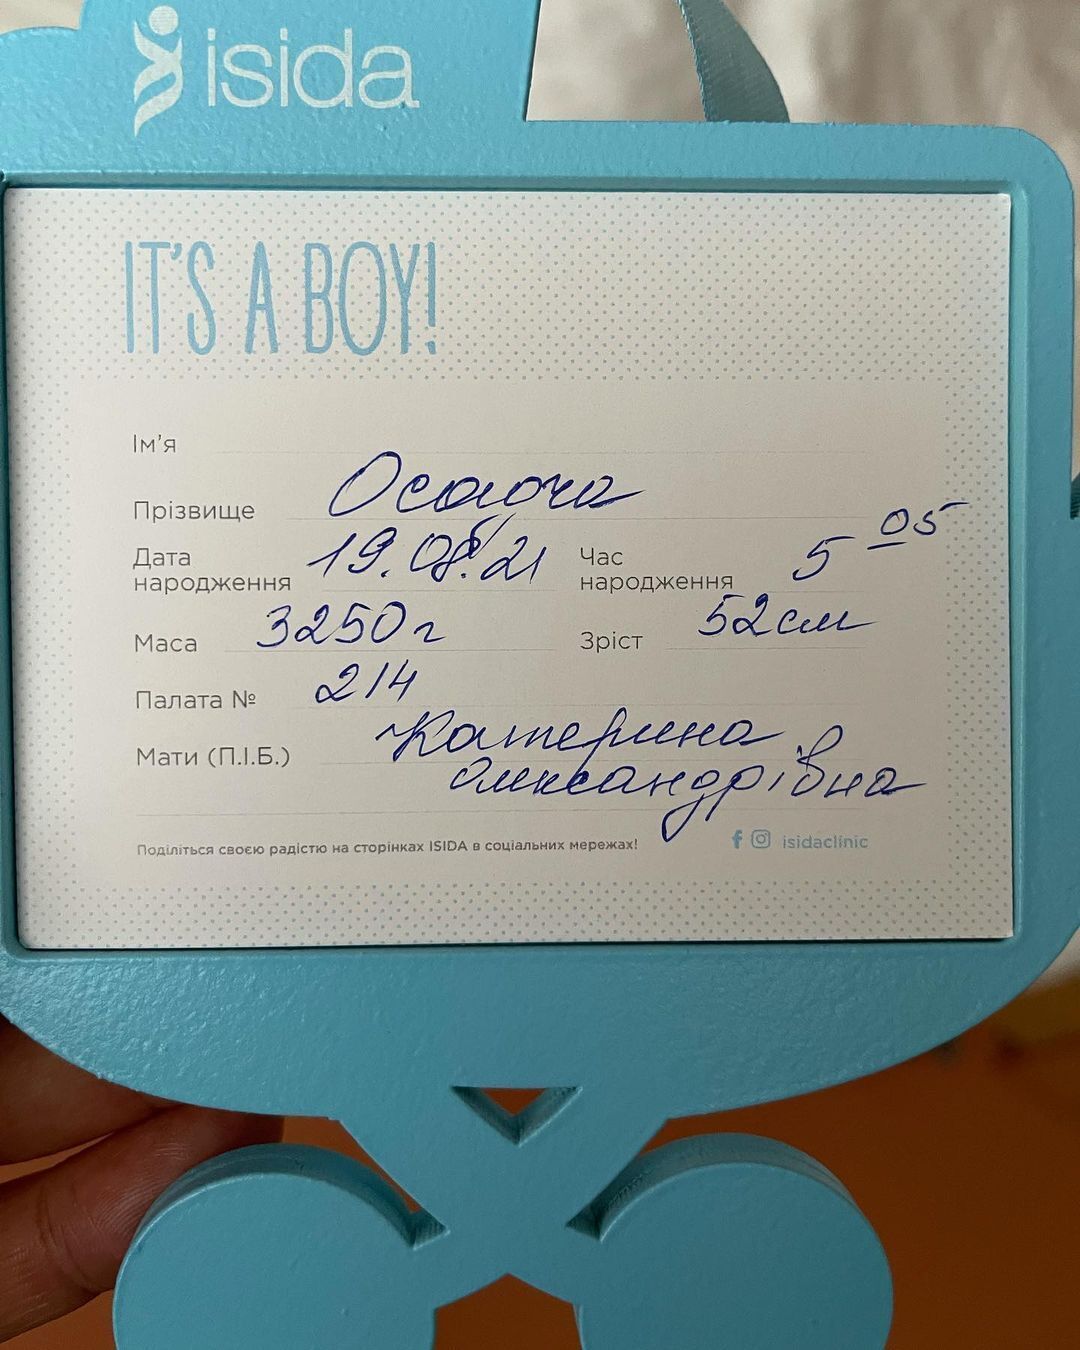 isida
IT'S A BOY!
Ім'я
Прізвище Осадча
Дата народження 19.08.21 Час народження 5 05
Маса 3250г Зріст 52см
Палата № 214
Мати (П.І.Б.) Катерина
Олександрівна
Поділіться своєю радістю на сторінках ISIDA в соціальних мережах! isidaclinic